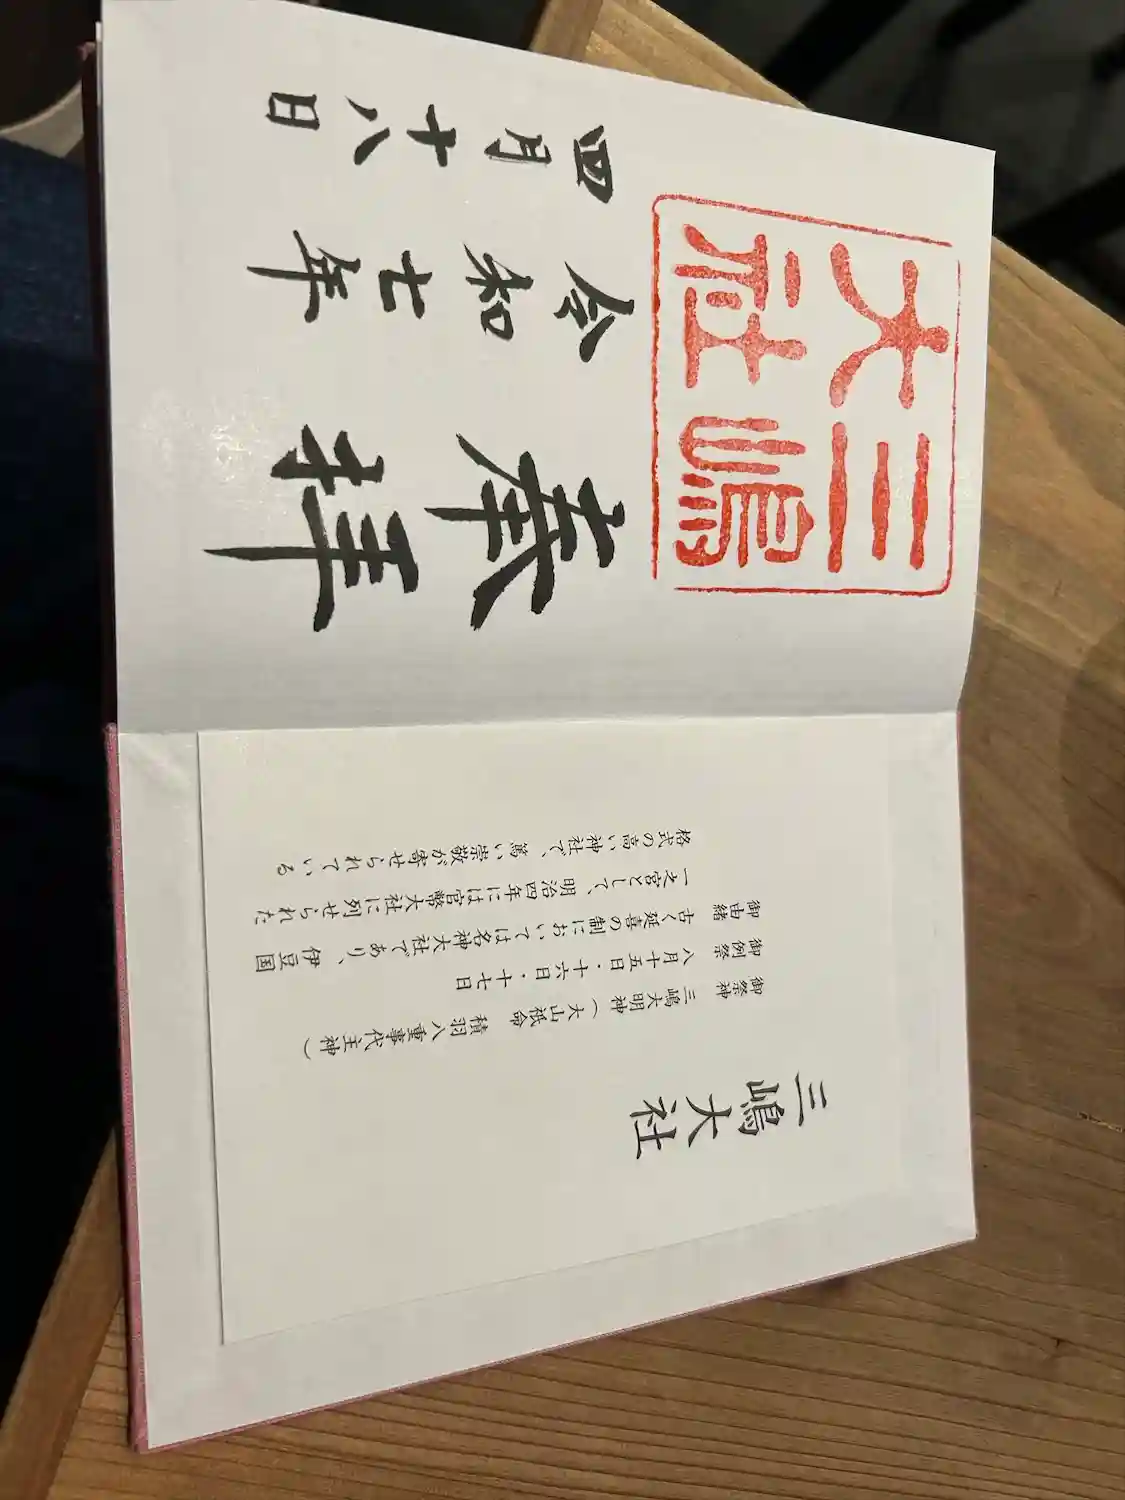 三嶋大社
御祭神 三嶋大明神（大山祇命 積羽八重事代主神）
御例祭 八月十五日・十六日・十七日
御由緒 古く延喜の制においては名神大社であり、伊豆国
一之宮として、明治四年には官幣大社に列せられた
格式の高い神社で、篤い崇敬が寄せられている
奉拝
三嶋
大社
令和七年
四月十八日